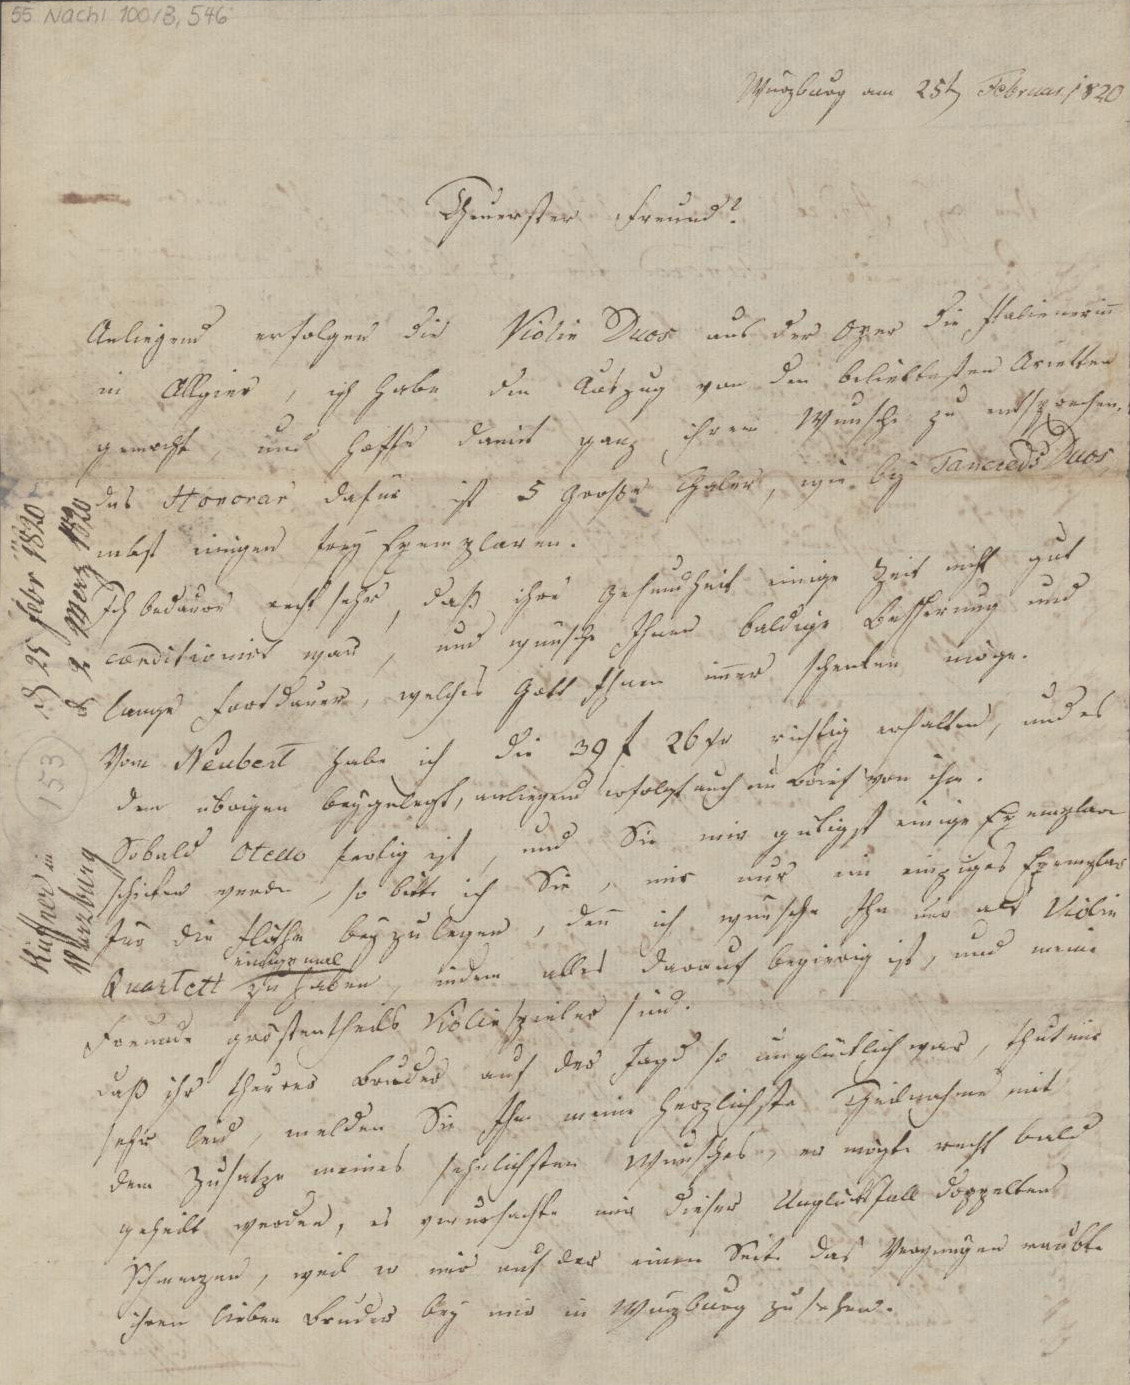 55 Nachl 100/B, 546
Würzburg am 25t Februar 1820
Theuerster Freund!
Anliegend erfolgen die Violin Duos aus der Oper die Italienerin̄
in Allgier, ich habe den Auszug von den beliebtesten Arietten
gemacht, und hoffe damit ganz ihrem Wunsche zu entsprechen.
das Honorar dafür ist 5 Große Thaler, wie bey Tancreds Duos
nebst einigen frey Exemplaren.
Ich bedaure recht sehr, daß ihre Gesundheit einige Zeit nicht gut
conditionirt war, und wünsche Ihnen baldige Besserung und
lange Fortdauer, welches Gott Ihnen im̄er schenken möge.
Vom Neubert habe ich die 39 f 26 xr richtig erhalten, und es
dem übrigen beygelegt, anliegend erfolgt auch ein Brief von ihm.
Sobald Otello fertig ist, und Sie mir gütigst einige Exemplare
schicken werden, so bitte ich Sie, mir nur ein einziges Exemplar
für die Flöthe beyzulegen, den̄ ich wünsche Ihn nur als Violin
Quartett einige mal zu haben, indem alles darauf begierig ist, und meine
Freunde gröstentheils Violinspieler sind.
Daß ihr theurer Bruder auf der Jagd so unglücklich war, thut mir
sehr leid, melden Sie Ihm meine herzlichste Theilnahme mit
dem Zusatze meines sehnlichsten Wunsches, er möchte recht bald
geheilt werden, es verursachte mir dieser Unglücksfall doppelten
Schmerzen, weil er mir auf der einen Seite das Vergnügen raubte
ihren lieben Bruder bey mir in Würzburg zu sehen.
25 febr 1820
2 Merz 1820
153
Küffner in
Würzburg